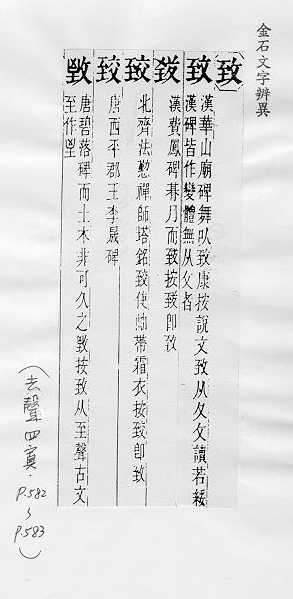 金石文字辨異
致
漢華山廟碑舞㠯致康按說文致从夂夊讀若綏
致
漢碑皆作變體無从夊者
漢費鳳碑朞月而致按致即致
北齊法懃禪師塔銘致使岫帶霜衣按致即致
唐西平郡王李晟碑
唐碧落碑而土木非可久之按致从至聲古文
至作
(去聲四寘.
P.582
~
P.583)